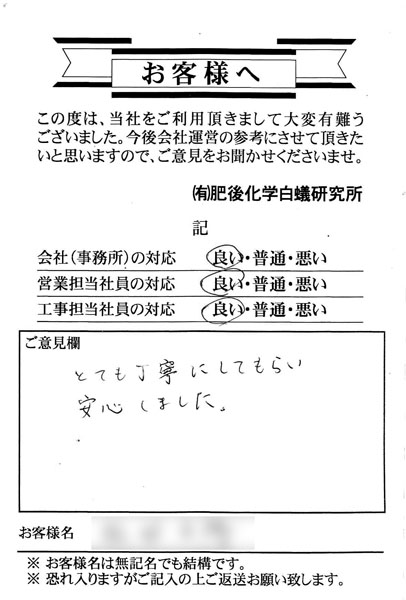 お客様へ
この度は、当社をご利用頂きまして大変有難う
ございました。今後会社運営の参考にさせて頂きた
いと思いますので、ご意見をお聞かせくださいませ。
㈲肥後化学白蟻研究所
記
会社(事務所)の対応 良い・普通・悪い
営業担当社員の対応 良い・普通・悪い
工事担当社員の対応 良い・普通・悪い
ご意見欄
とても丁寧にしてもらい
安心しました。
お客様名
※ お客様名は無記名でも結構です。
※ 恐れ入りますがご記入の上ご返送お願い致します。